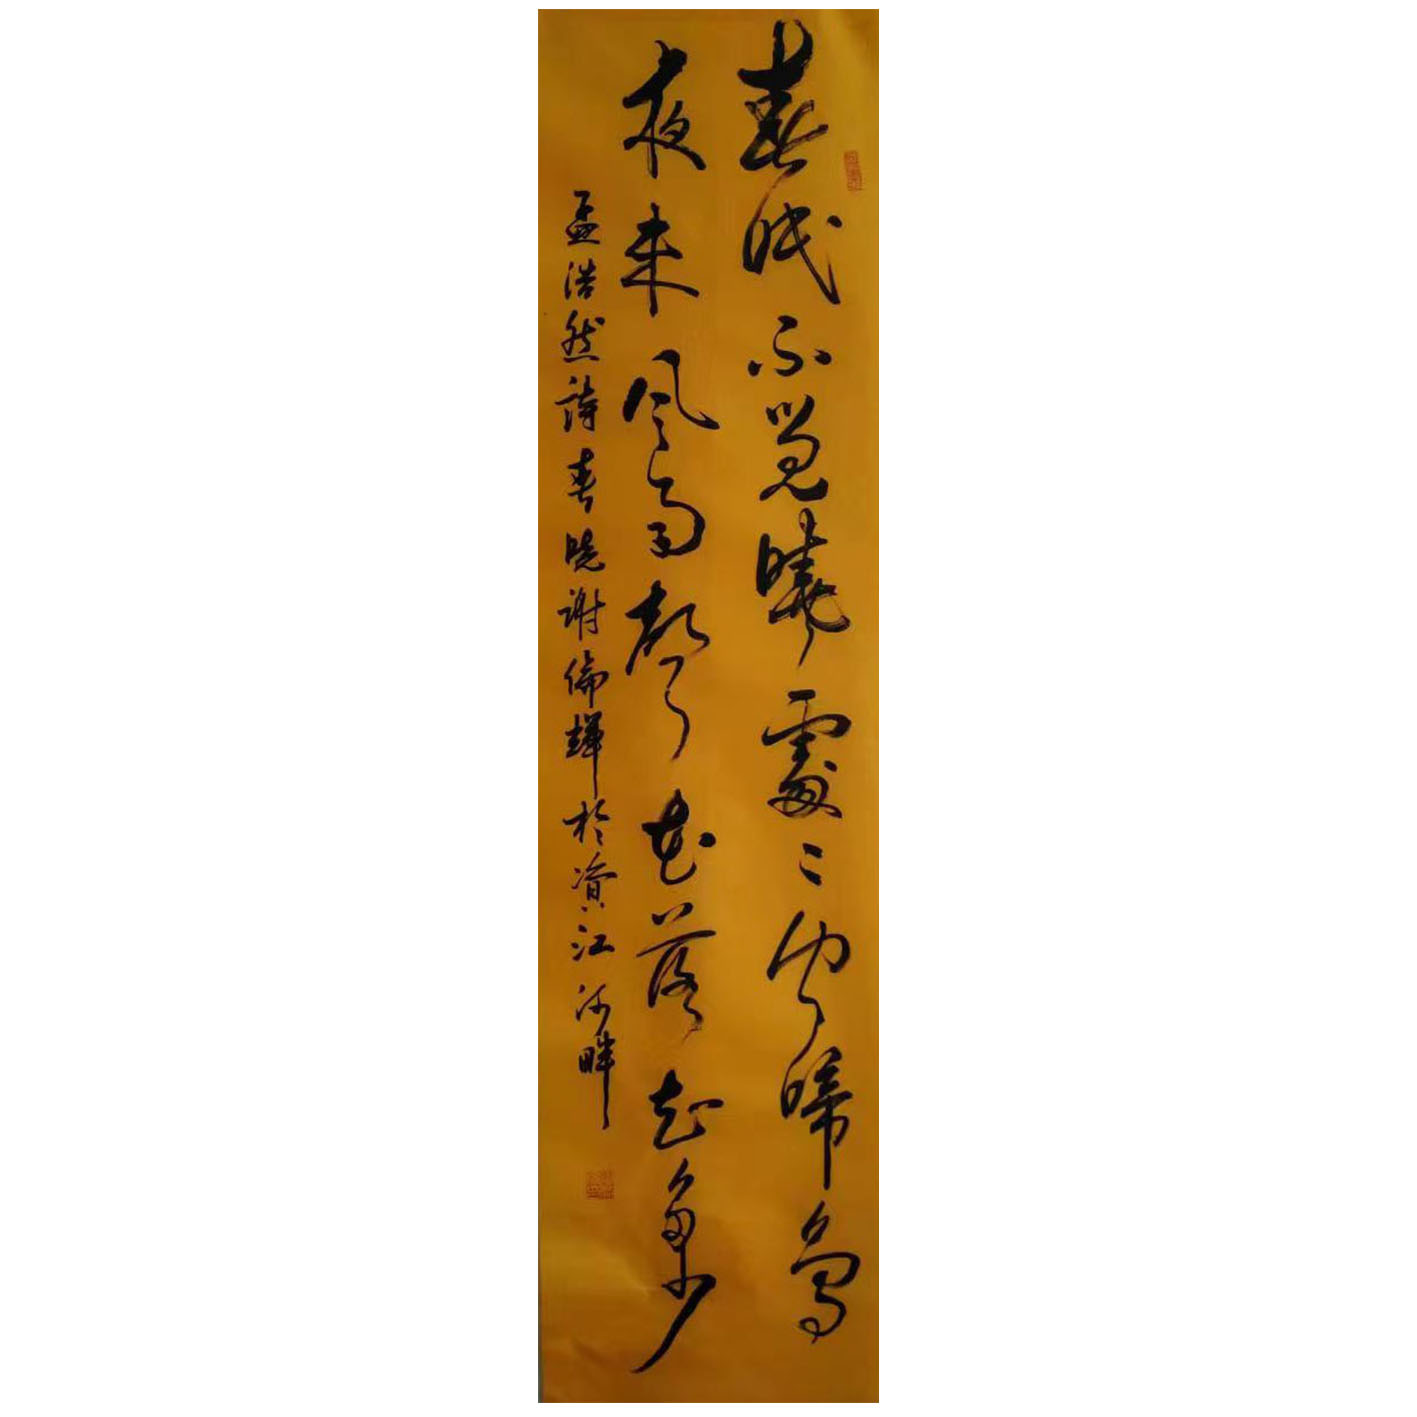 春眠不覺曉處々聞啼鳥
夜来風雨聲花落知多少
孟浩然詩春曉謝倫輝於資江河畔